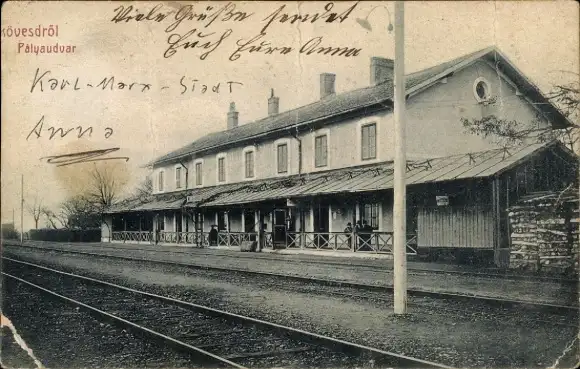 kövesdről
Pályaudvar
Viele Grüße sendet
Euch Eure Anna
Karl-Marx-Stadt
Anna